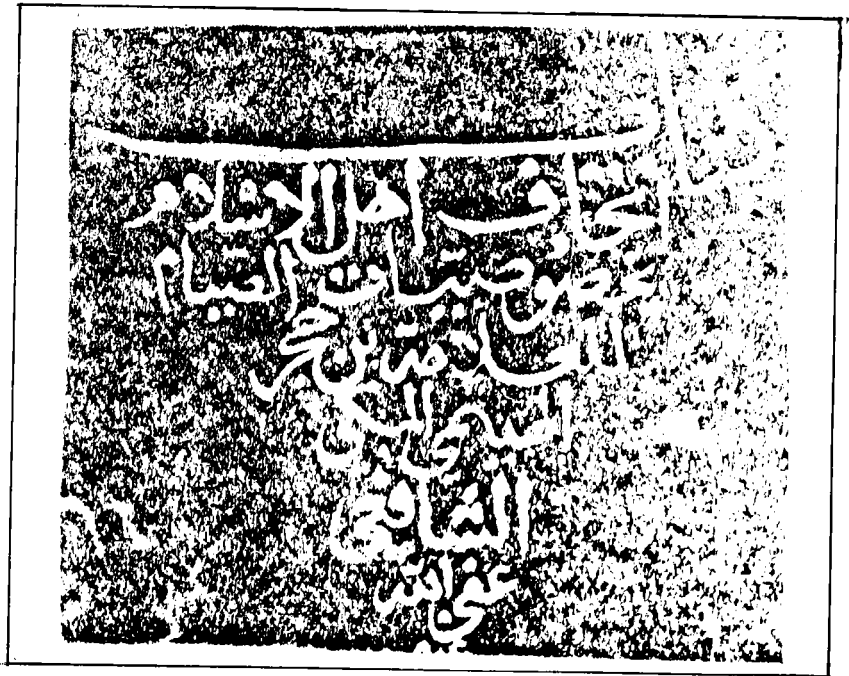 اتحاف اهل الاسلام
بخصوصيات الصيام
للعلامة بن حجر
الهيتمي المكي
الشافعي
عفى الله
عن